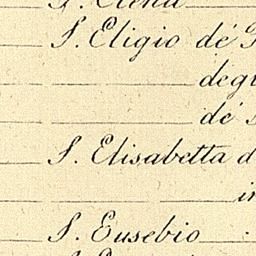 S. Elena
S. Eligio dé
dé
S. Elisabetta d
S. Eusebio